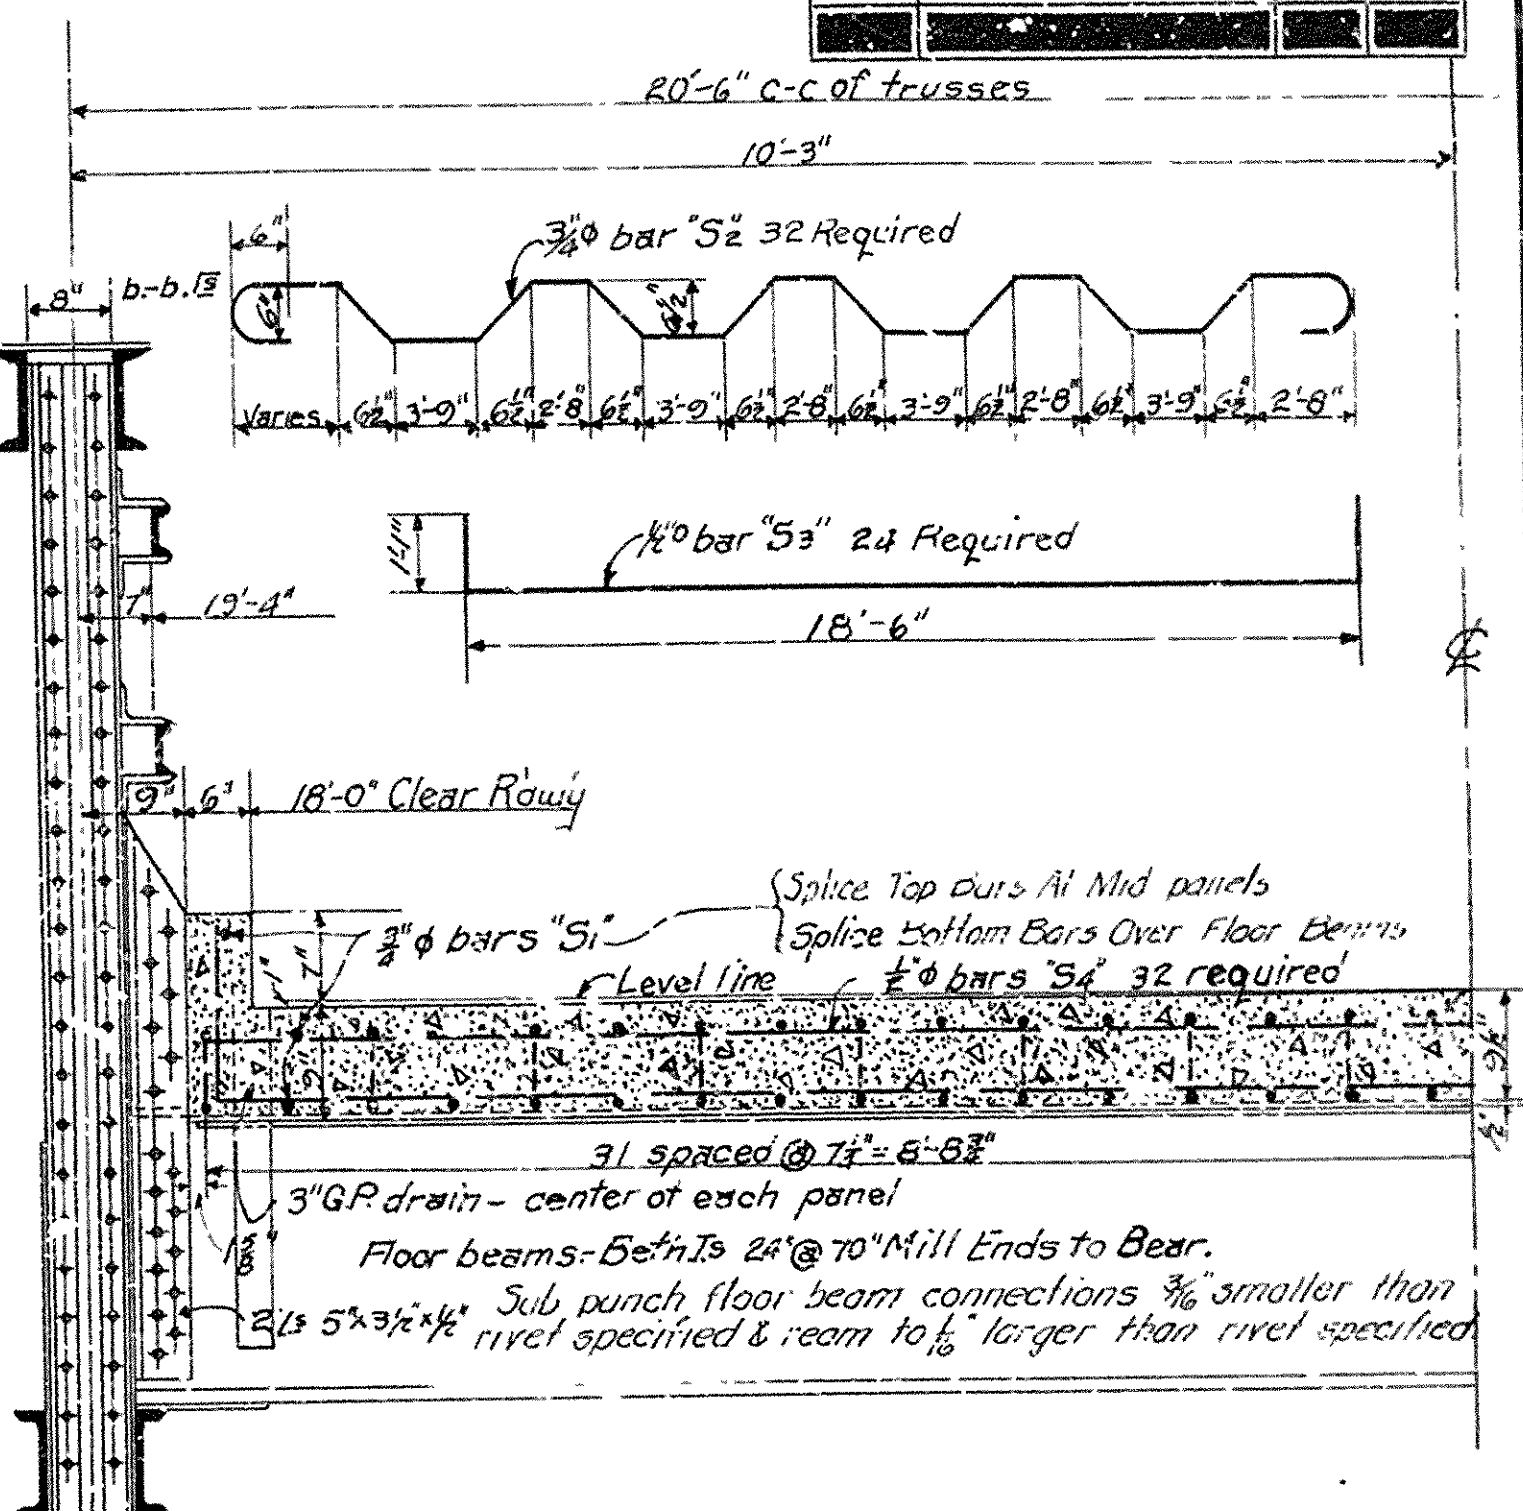 20'-6" c-c of trusses
10'-3"
6"
3/4"ϕ bar "S2" 32 Required
8"
b.-b.
6"
6½"
Varies 6½" 3'-9" 6½" 2'-8" 6½" 3'-9" 6½" 2'-8" 6½" 3'-9" 6½" 2'-8" 6½" 3'-9" 6½" 2'-8"
1'-1"
½" bar "S3" 24 Required
7" 19'-4"
18'-6"
℄
9" 6" 18'-0" Clear R'dw'y
Splice Top Bars At Mid panels
¾"ϕ bars "S1"
Splice Bottom Bars Over Floor Beams
1" 7"
Level line
½"ϕ bars "S4" 32 required
9"
9½"
½"
31 spaced @ 7¼" = 8'-8¾"
3" G.P. drain - center of each panel
Floor beams:- Beth Is 24" @ 70" Mill Ends to Bear.
Sub punch floor beam connections 3/16" smaller than
2 Ls 5"x3½"x½"
rivet specified & ream to 1/16" larger than rivet specified